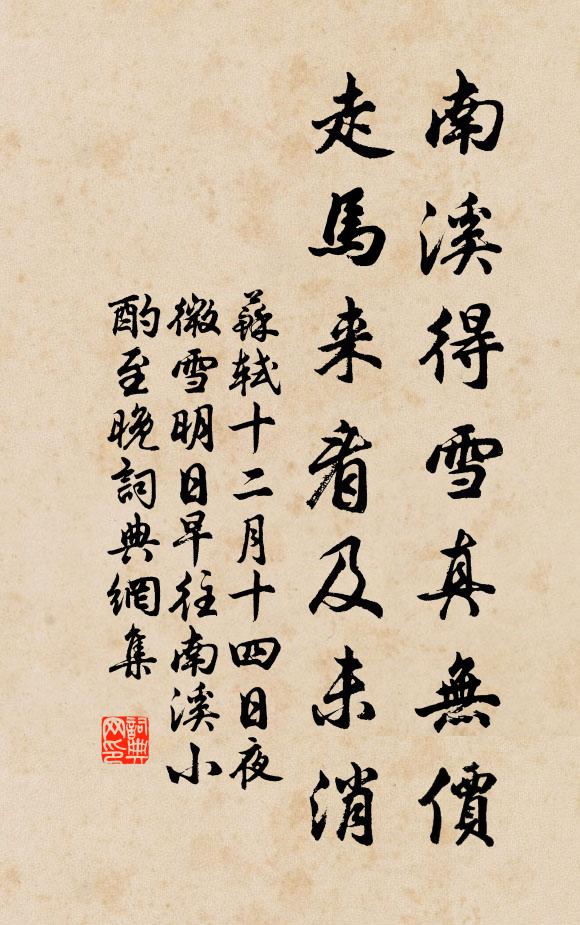 南溪得雪真無價
走馬来看及未消
蘇軾十二月十四日夜
微雪明日早往南溪小
酌至晚詞典網集
詞典
网印